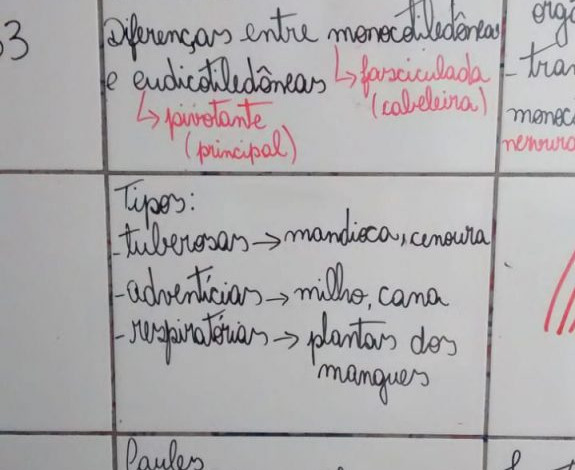 33
Diferenças entre monocotiledôneas
e eudicotiledôneas
↳ fasciculada
(cabeleira)
↳ pivotante
(principal)
Tipos:
- tuberosas → mandioca, cenoura
- adventícias → milho, cana
- respiratórias → plantas dos
mangues
Caules